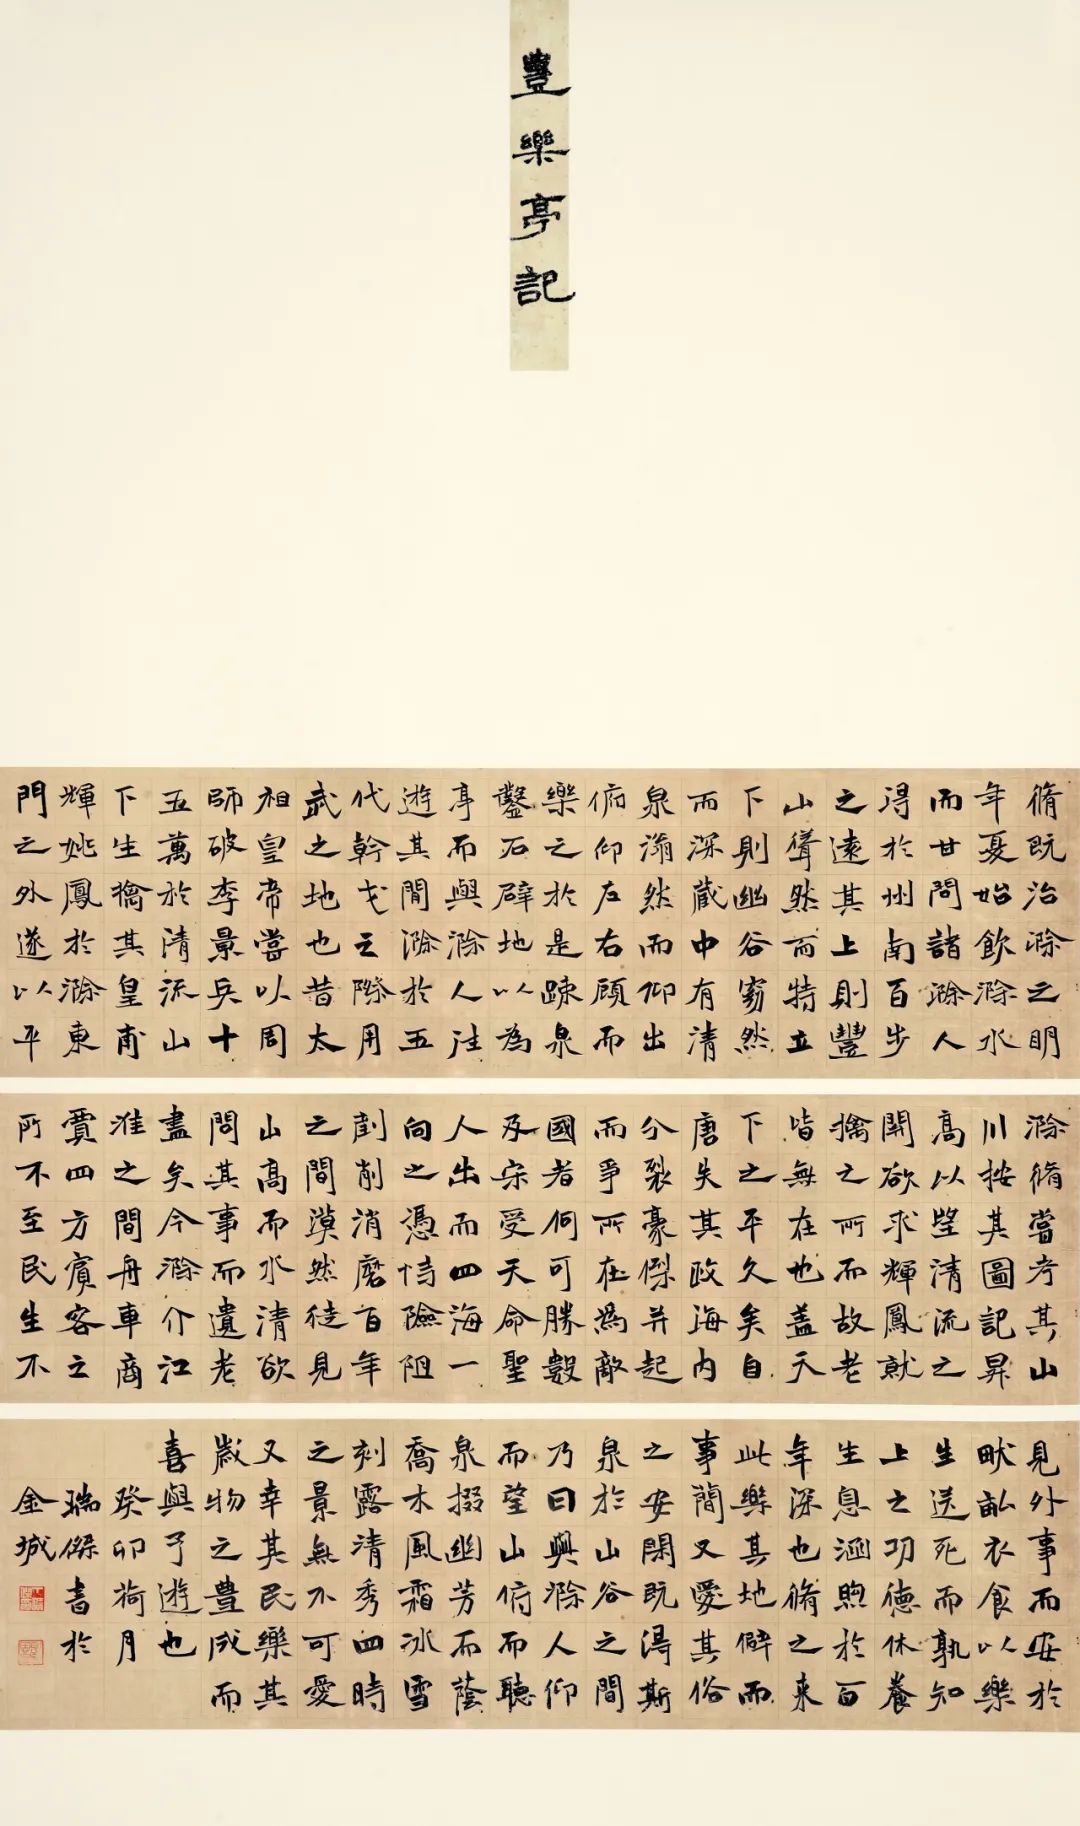 豐樂亭記
脩既治滁之明
年夏始飲滁水
而甘問諸滁人
得於州南百步
之遠其上則豐
山聳然而特立
下則幽谷窈然
而深藏中有清
泉滃然而仰出
俯仰左右顧而
樂之於是疎泉
鑿石辟地以為
亭而與滁人往
遊其間滁於五
代幹戈之際用
武之地也昔太
祖皇帝嘗以周
師破李景兵十
五萬於清流山
下生擒其皇甫
輝姚鳳於滁東
門之外遂以平
滁脩嘗考其山
川按其圖記昇
高以望清流之
關欲求輝鳳就
擒之所而故老
皆無在也蓋天
下之平久矣自
唐失其政海内
分裂豪傑并起
而爭所在為敵
國者何可勝數
及宋受天命聖
人出而四海一
向之憑恃險阻
剷削消磨百年
之間漠然徒見
山高而水清欲
問其事而遺老
盡矣今滁介江
淮之間舟車商
賈四方賓客之
所不至民生不
見外事而安於
畎畝衣食以樂
生送死而孰知
上之功德休養
生息涵煦於百
年深也脩之來
此樂其地僻而
事簡又愛其俗
之安閑既得斯
泉於山谷之間
乃曰與滁人仰
而望山俯而聽
泉掇幽芳而蔭
喬木風霜冰雪
刻露清秀四時
之景無不可愛
又幸其民樂其
歲物之豊成而
喜與予遊也
癸卯荷月
瑞傑書於
金城